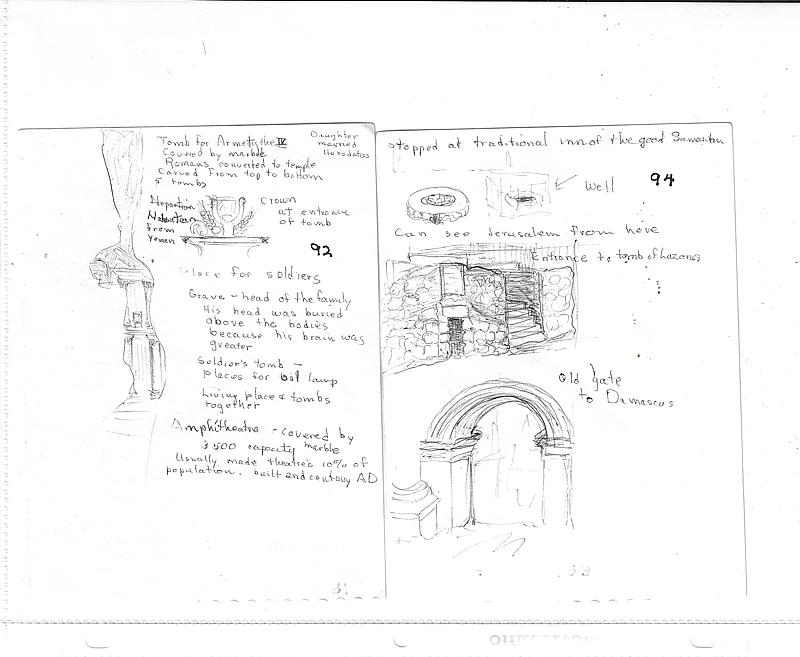 Tomb for Armetifthe IV
Covered by marble
Romans converted to temple
Carved from top to bottom
5 tombs
Daughter
married
Herodatas
Nepartian
Nabatean
from
Yemen
Crown
at entrance
of tomb
92
Place for soldiers
Grave - head of the family
His head was buried
above the bodies
because his brain was
greater
Soldier's tomb -
places for oil lamp
Living place & tombs
together
Amphitheatre - covered by
3500 capacity marble
Usually made theatres 10% of
population. built 2nd century AD
stopped at traditional inn of the good Samaritan
Well
94
Can see Jerusalem from here
Entrance to tomb of Lazarus
Old gate
to Damascus